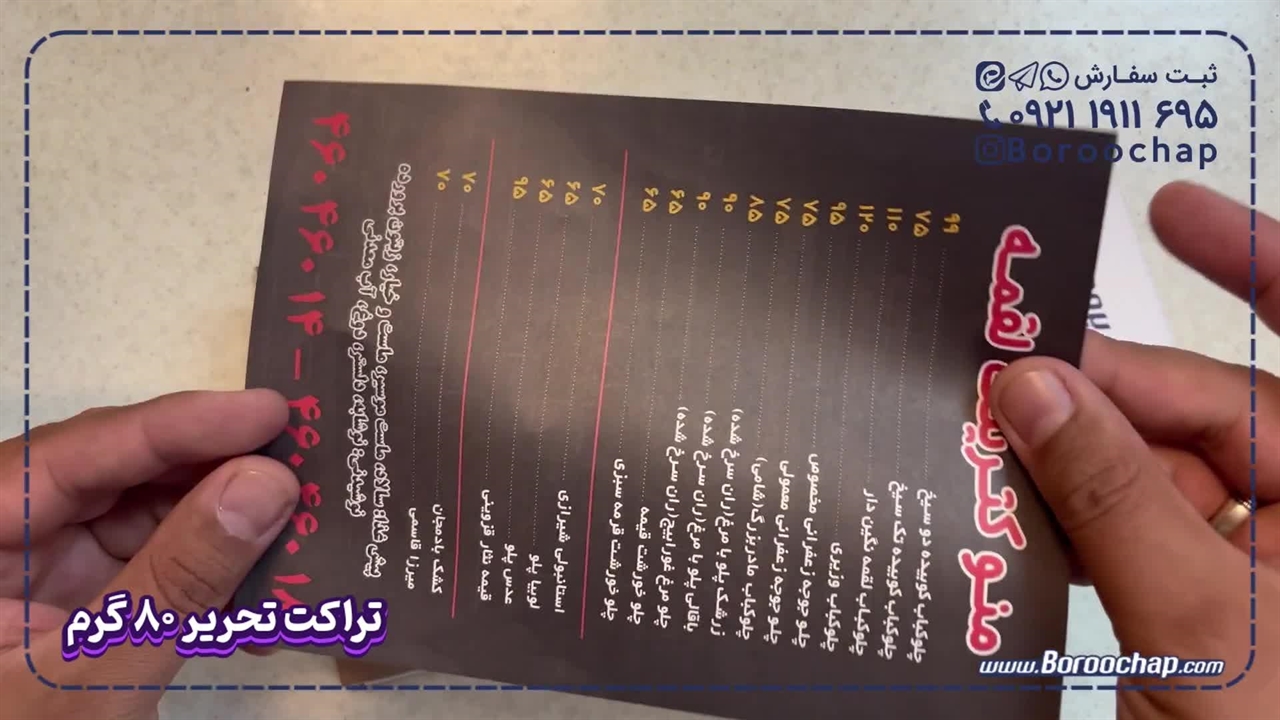 ثبت سفارش
۰۹۲۱ ۱۹۱۱ ۶۹۵
Boroochap
منو کترینگ لقمه
چلوکباب کوبیده دو سیخ ۹۹
چلوکباب کوبیده تک سیخ ۷۵
چلوکباب لقمه نگین دار ۱۱۰
چلوکباب وزیری ۱۲۰
چلو جوجه زعفرانی مخصوص ۹۵
چلو جوجه زعفرانی معمولی ۷۵
چلوکباب مادربزرگ(شامی) ۷۵
زرشک پلو با مرغ(ران سرخ شده) ۸۵
باقالی پلو با مرغ(ران سرخ شده) ۹۰
چلو مرغ غورابیج(ران سرخ شده) ۹۰
چلو خورشت قیمه ۶۵
چلو خورشت قرمه سبزی ۶۵
استانبولی شیرازی ۷۰
لوبیا پلو ۶۵
عدس پلو ۶۵
قیمه نثار قزوینی ۹۵
کشک بادمجان ۷۰
میرزا قاسمی ۷۰
پیش غذا: سالاد، ماست موسیر، ماست و خیار، زیتون پرورده
نوشیدنی: نوشابه، دلستر، دوغ، آب معدنی
۴۶۰۴۶۰۱۴ – ۴۶۰۴۶۰۱
تراکت تحریر ۸۰ گرم
www.Boroochap.com